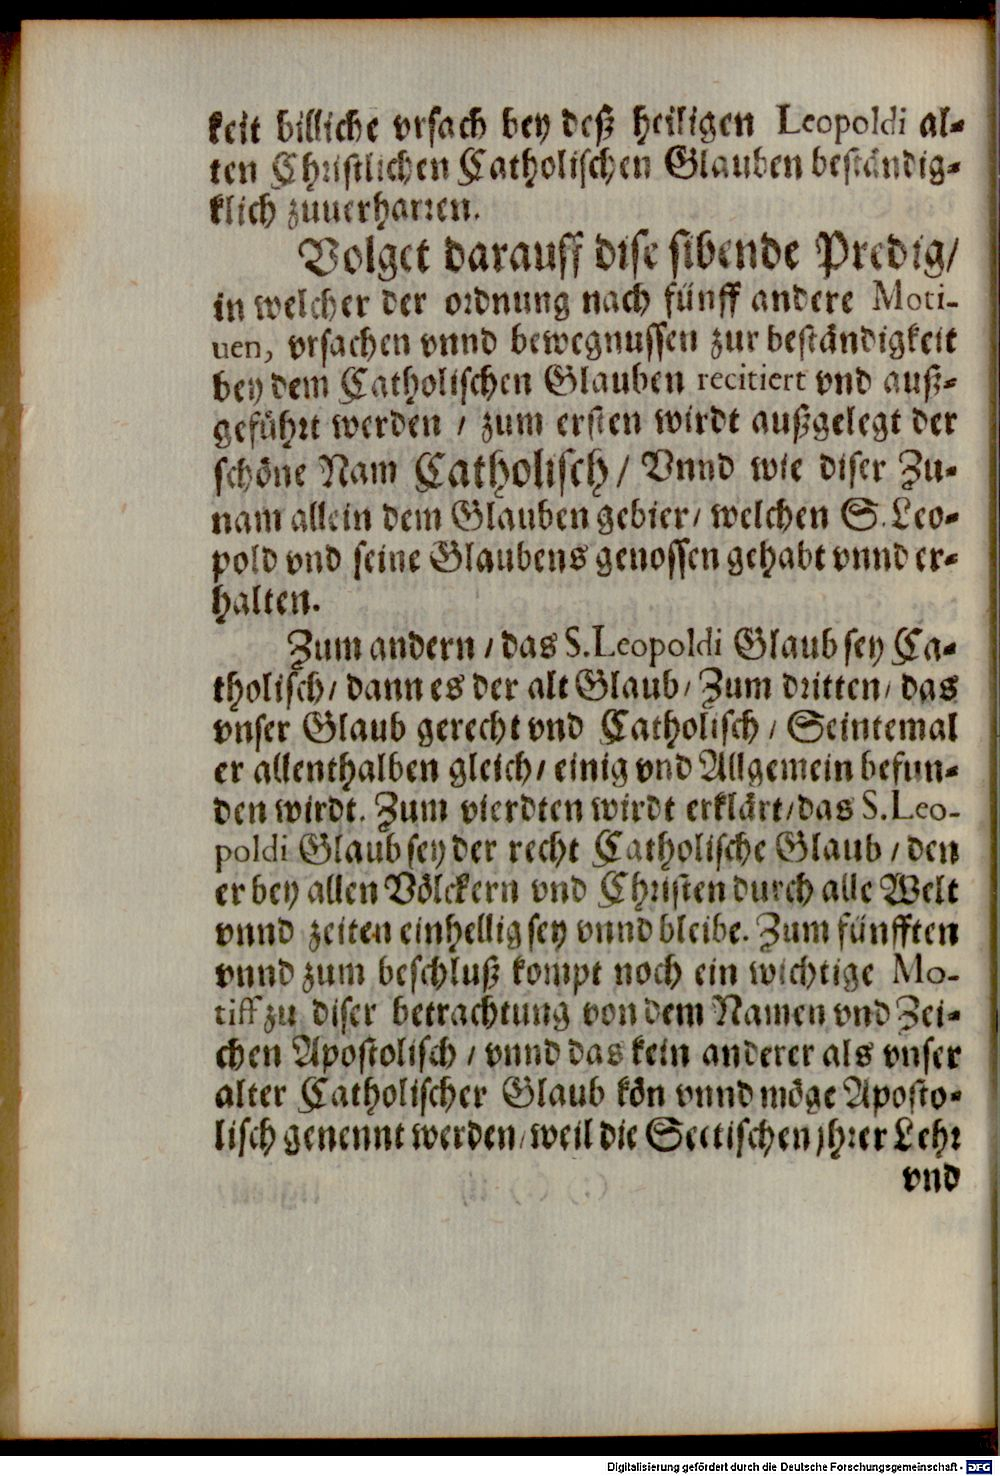 keit billiche vrsach bey deß heiligen Leopoldi al-
ten Christlichen Catholischen Glauben beständig-
klich zuuerharren.
Volget darauff dise sibende Predig/
in welcher der ordnung nach fünff andere Moti-
uen, vrsachen vnnd bewegnussen zur beständigkeit
bey dem Catholischen Glauben recitiert vnd auß-
geführt werden / zum ersten wirdt außgelegt der
schöne Nam Catholisch / Vnnd wie diser Zu-
nam allein dem Glauben gebier / welchen S. Leo-
pold vnd seine Glaubens genossen gehabt vnnd er-
halten.
Zum andern / das S. Leopoldi Glaub sey Ca-
tholisch / dann es der alt Glaub / Zum dritten / das
vnser Glaub gerecht vnd Catholisch / Seintemal
er allenthalben gleich / einig vnd Allgemein befun-
den wirdt. Zum vierdten wirdt erklärt / das S. Leo-
poldi Glaub sey der recht Catholische Glaub / den
er bey allen Völckern vnd Christen durch alle Welt
vnnd zeiten einhellig sey vnnd bleibe. Zum fünfften
vnnd zum beschluß kompt noch ein wichtige Mo-
tiff zu diser betrachtung von dem Namen vnd Zei-
chen Apostolisch / vnnd das kein anderer als vnser
alter Catholischer Glaub kön vnnd möge Aposto-
lisch genennt werden / weil die Sectischen jhrer Lehr
vnd
Digitalisierung gefördert durch die Deutsche Forschungsgemeinschaft - DFG